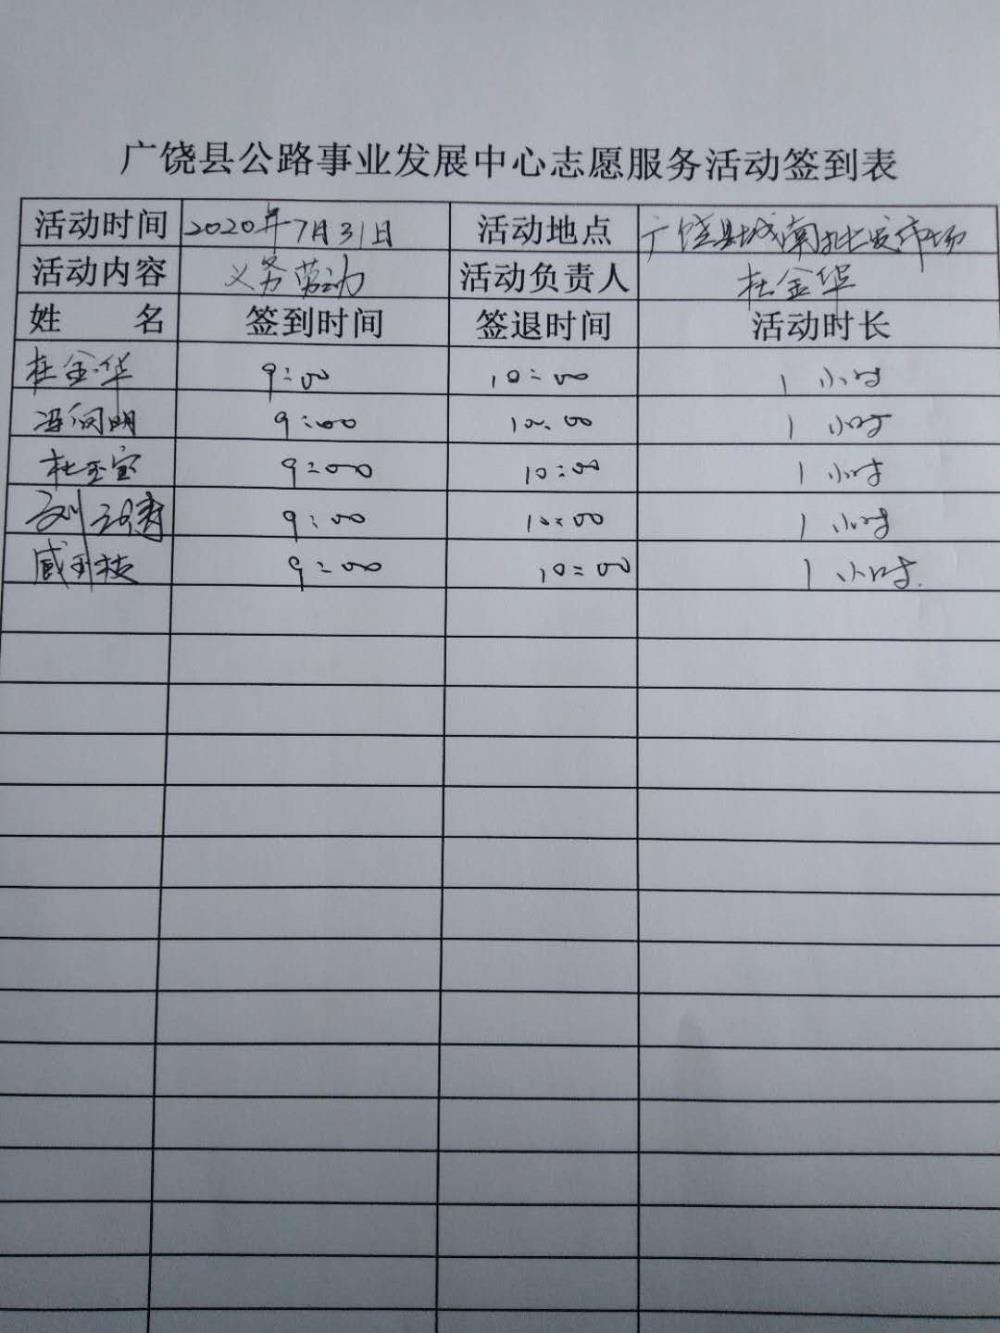 广饶县公路事业发展中心志愿服务活动签到表
活动时间 2020年7月31日 活动地点 广饶县城南批发市场
活动内容 义务劳动 活动负责人 杜金华
姓 名 签到时间 签退时间 活动时长
杜金华 9:00 10:00 1小时
冯向明 9:00 10:00 1小时
杜玉宝 9:00 10:00 1小时
刘 9:00 10:00 1小时
9:00 10:00 1小时.